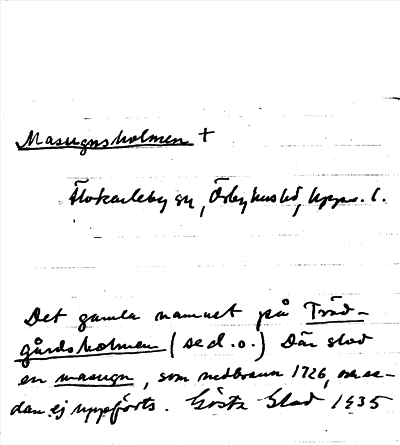 Masugnsholmen +
Älvkarleby sn, Örbyhus hd, Upps. l.
Det gamla namnet på Träd-
gårdsholmen (se d. o.) Där stod
en masugn, som nedbrann 1726, men se-
dan ej uppförts. Gösta Glad 1935